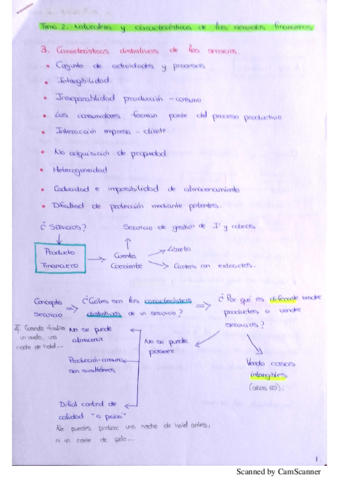 Tema 2. Naturaleza y características de los servicios financieros.
3. Características distintivas de los servicios.
• Conjunto de actividades y procesos
• Intangibilidad
• Inseparabilidad producción - consumo
• Los consumidores forman parte del proceso productivo
• Interacción empresa - cliente
• No adquisición de propiedad
• Heterogeneidad
• Caducidad e imposibilidad de almacenamiento
• Dificultad de protección mediante patentes.
¿Servicios?
Servicio de gestión de y cobros.
Producto
Financiero
Cuenta
Corriente
Libreta
Gastos en extractos.
Concepto
Servicio
¿Cuáles son las características
distintivas de un servicio?
¿Por qué es diferente vender
productos o vender
servicios?
Ej. Cuando
un vuelo, una
noche de hotel...
No se puede
almacenar
No se puede
poseer
Producción-consumo
son simultáneos.
Vendo cosas
intangibles
Difícil control de
calidad "a priori"
No puedes probar una noche de hotel antes,
ni un corte de pelo...
1
Scanned by CamScanner